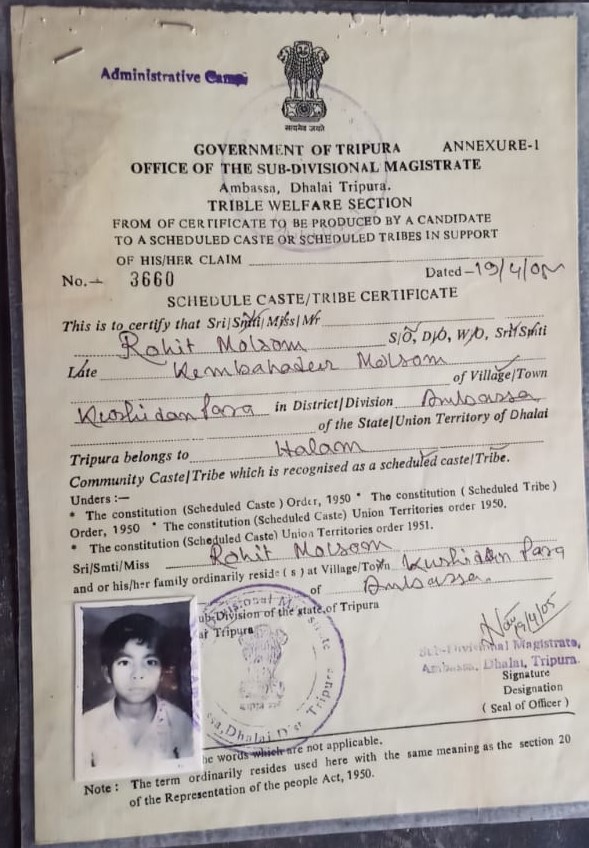 Administrative Camp
सत्यमेव जयते
GOVERNMENT OF TRIPURA ANNEXURE-1
OFFICE OF THE SUB-DIVISIONAL MAGISTRATE
Ambassa, Dhalai Tripura.
TRIBLE WELFARE SECTION
FROM OF CERTIFICATE TO BE PRODUCED BY A CANDIDATE
TO A SCHEDULED CASTE OR SCHEDULED TRIBES IN SUPPORT
OF HIS/HER CLAIM
No.- 3660 Dated-19/4/05
SCHEDULE CASTE/TRIBE CERTIFICATE
This is to certify that Sri/Smti/Miss/Mr
Rohit Molsom S/O, D/O, W/O, Sri/Smti
Late Kembahadur Molsom of Village/Town
Kushidan Para in District/Division Ambassa
of the State/Union Territory of Dhalai
Tripura belongs to Halam
Community Caste/Tribe which is recognised as a scheduled caste/Tribe.
Unders :—
* The constitution (Scheduled Caste ) Order, 1950 * The constitution ( Scheduled Tribe )
Order, 1950 * The constitution (Scheduled Caste) Union Territories order 1950.
* The constitution (Scheduled Caste) Union Territories order 1951.
Sri/Smti/Miss Rohit Molsom
and or his/her family ordinarily reside ( s ) at Village/Town Kushidan Para
of Ambassa.
ub-Division of the state,of Tripura
ar Tripura
19/4/05
Sub-Divisional Magistrate,
Ambassa, Dhalai, Tripura.
Signature
Designation
( Seal of Officer )
Sub-Divisional Magistrate
सत्यमेव जयते
Dhalai Dist Tripura
he words which are not applicable.
Note : The term ordinarily resides used here with the same meaning as the section 20
of the Representation of the people Act, 1950.